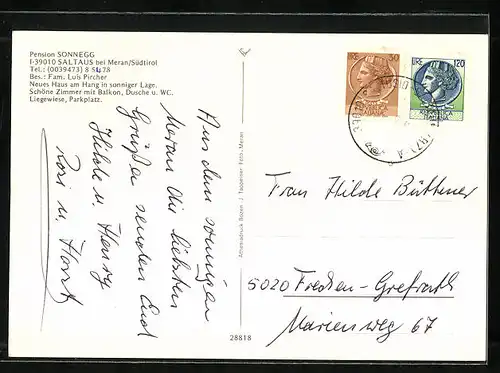 Pension SONNEGG
I-39010 SALTAUS bei Meran/Südtirol
Tel.: (0039473) 8 54 78
Bes.: Fam. Luis Pircher
Neues Haus am Hang in sonniger Lage.
Schöne Zimmer mit Balkon, Dusche u. WC.
Liegewiese, Parkplatz.
Aus dem sonnigen
Meran die liebsten
Grüße senden Euch
Hilde u. Henry
Rosi u. Horst
J. Tappeiner Foto, Meran
28818
50
LIRE 120
Frau Hilde Büttener
5020 Frechen-Grefrath
Marienweg 67